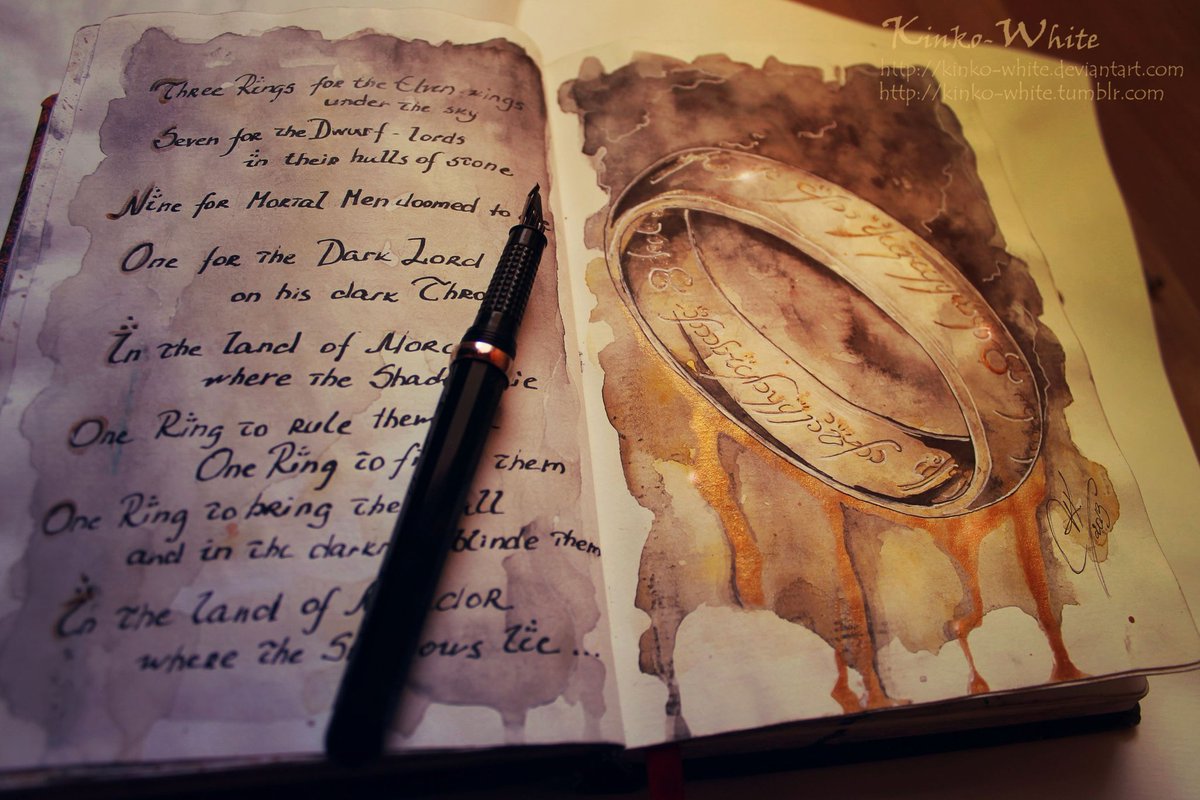 Kinko-White
http://kinko-white.deviantart.com
http://kinko-white.tumblr.com
Three Rings for the Elven-kings
under the sky
Seven for the Dwarf-lords
in their halls of stone
Nine for Mortal Men doomed to
One for the Dark Lord
on his dark
In the land of
where the
One Ring to rule
One Ring to them
One Ring to bring
and in the blinde them
In the land of
where the lie ...